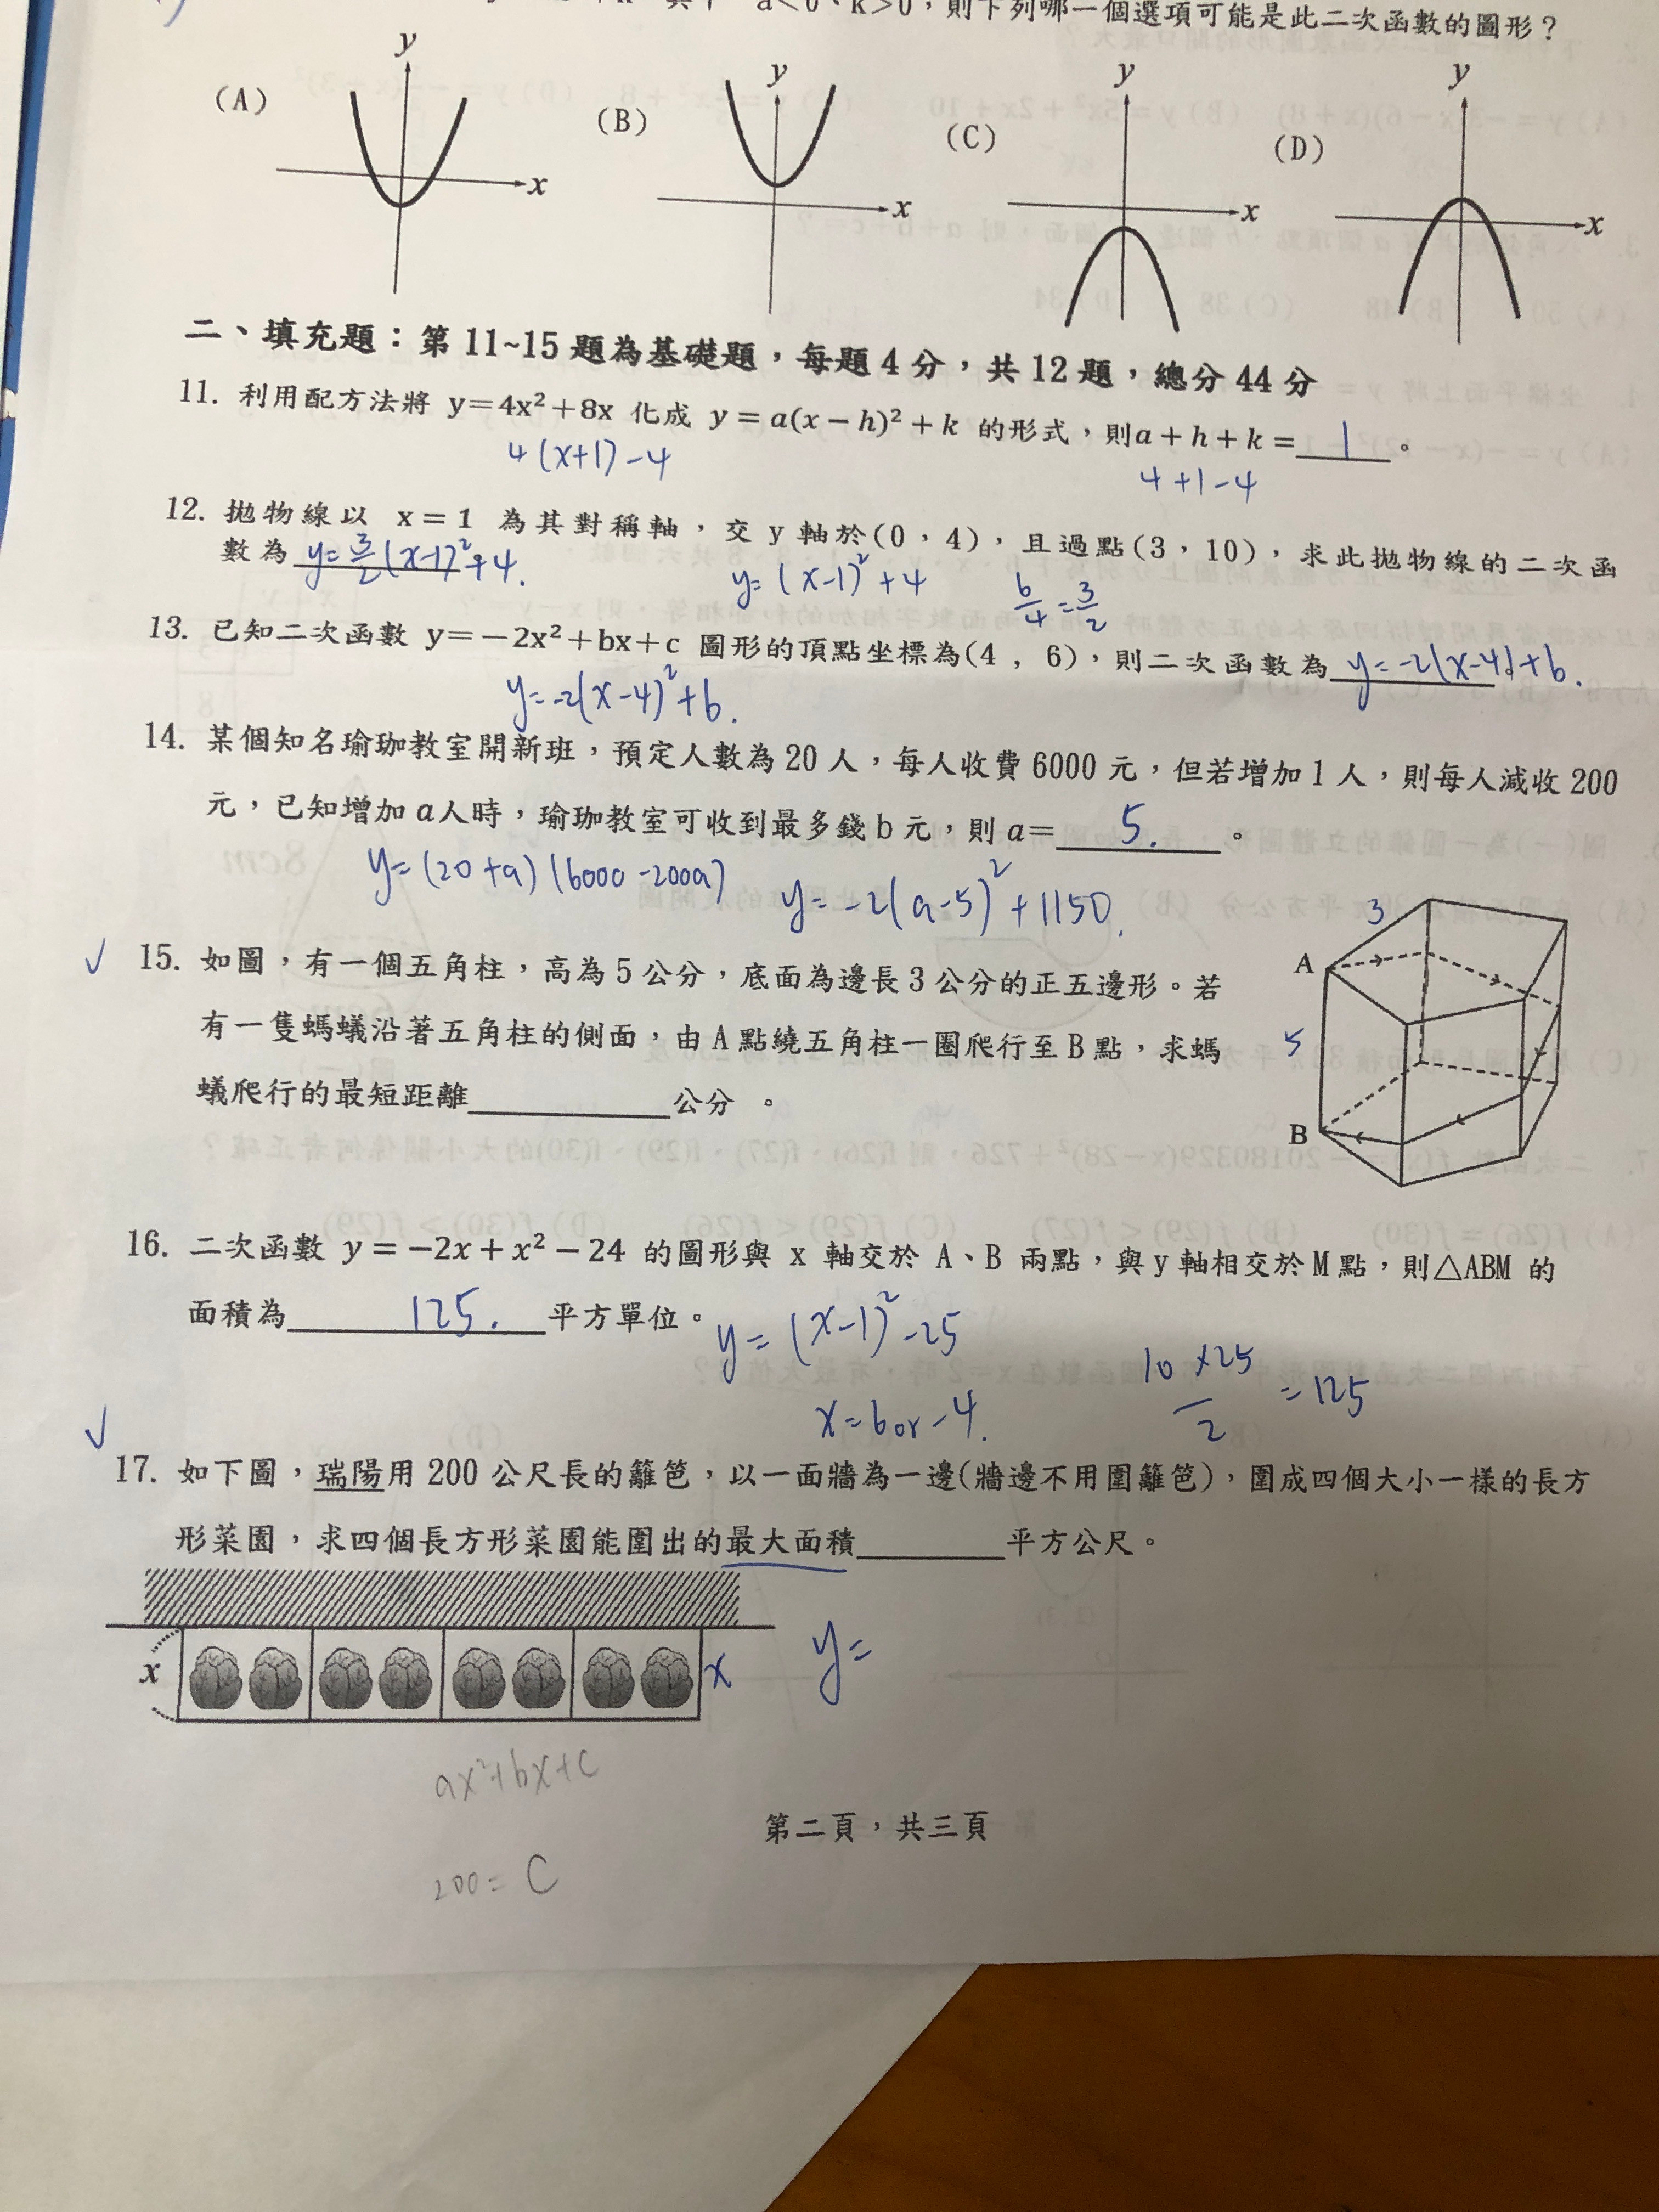 a<0、k>0，則下列哪一個選項可能是此二次函數的圖形？
(A) y x (B) y x (C) y x (D) y x
二、填充題：第 11~15 題為基礎題，每題 4 分，共 12 題，總分 44 分
11. 利用配方法將 y=4x²+8x 化成 y = a(x − h)² + k 的形式，則a + h + k = 1 。
4(x+1)-4
4+1-4
12. 拋物線以 x = 1 為其對稱軸，交 y 軸於(0，4)，且過點(3，10)，求此拋物線的二次函
數為 y=3/2(x-1)²+4.
y=(x-1)²+4
6/4=3/2
13. 已知二次函數 y=−2x²+bx+c 圖形的頂點坐標為(4，6)，則二次函數為 y=-2(x-4)²+6.
y=-2(x-4)²+6.
14. 某個知名瑜珈教室開新班，預定人數為 20 人，每人收費 6000 元，但若增加 1 人，則每人減收 200
元，已知增加 a人時，瑜珈教室可收到最多錢 b 元，則 a= 5. 。
y=(20+a)(6000-200a)
y=-2(a-5)²+1150.
15. 如圖，有一個五角柱，高為 5 公分，底面為邊長 3 公分的正五邊形。若
有一隻螞蟻沿著五角柱的側面，由 A 點繞五角柱一圈爬行至 B 點，求螞
蟻爬行的最短距離 公分 。
3
A
5
B
16. 二次函數 y = −2x + x² − 24 的圖形與 x 軸交於 A、B 兩點，與 y 軸相交於 M 點，則△ABM 的
面積為 125. 平方單位。
y=(x-1)²-25
x=6or-4.
10×25/2=125
17. 如下圖，瑞陽用 200 公尺長的籬笆，以一面牆為一邊(牆邊不用圍籬笆)，圍成四個大小一樣的長方
形菜園，求四個長方形菜園能圍出的最大面積 平方公尺。
x
x
y=
ax²+bx+c
第二頁，共三頁
200=C